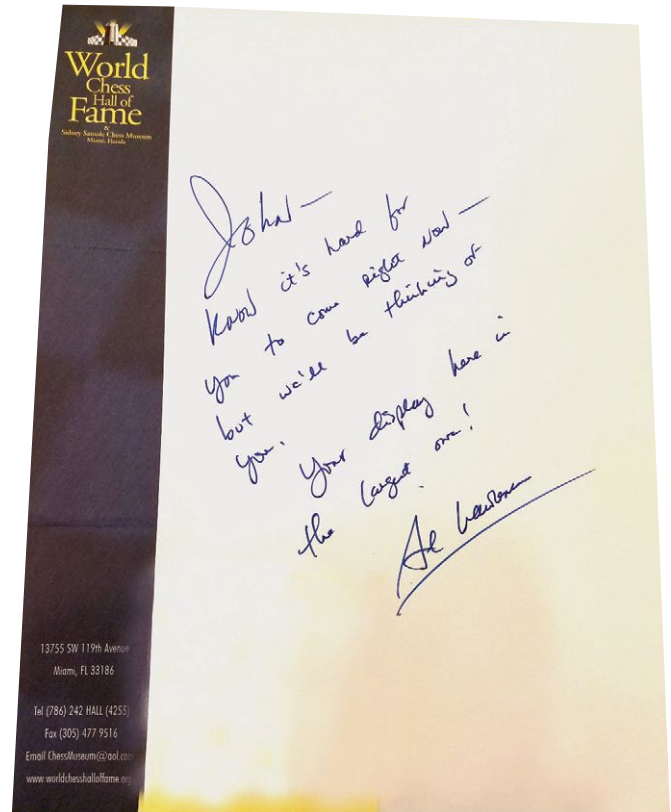 World
Chess
Hall of
Fame
&
Sidney Samole Chess Museum
Miami, Florida
John —
Know it's hard for
you to come right now —
but we'll be thinking of
you.
Your display here in
the largest one!
Al Lawrence
13755 SW 119th Avenue
Miami, FL 33186
Tel (786) 242 HALL (4255)
Fax (305) 477 9516
Email ChessMuseum@aol.com
www.worldchesshalloffame.org